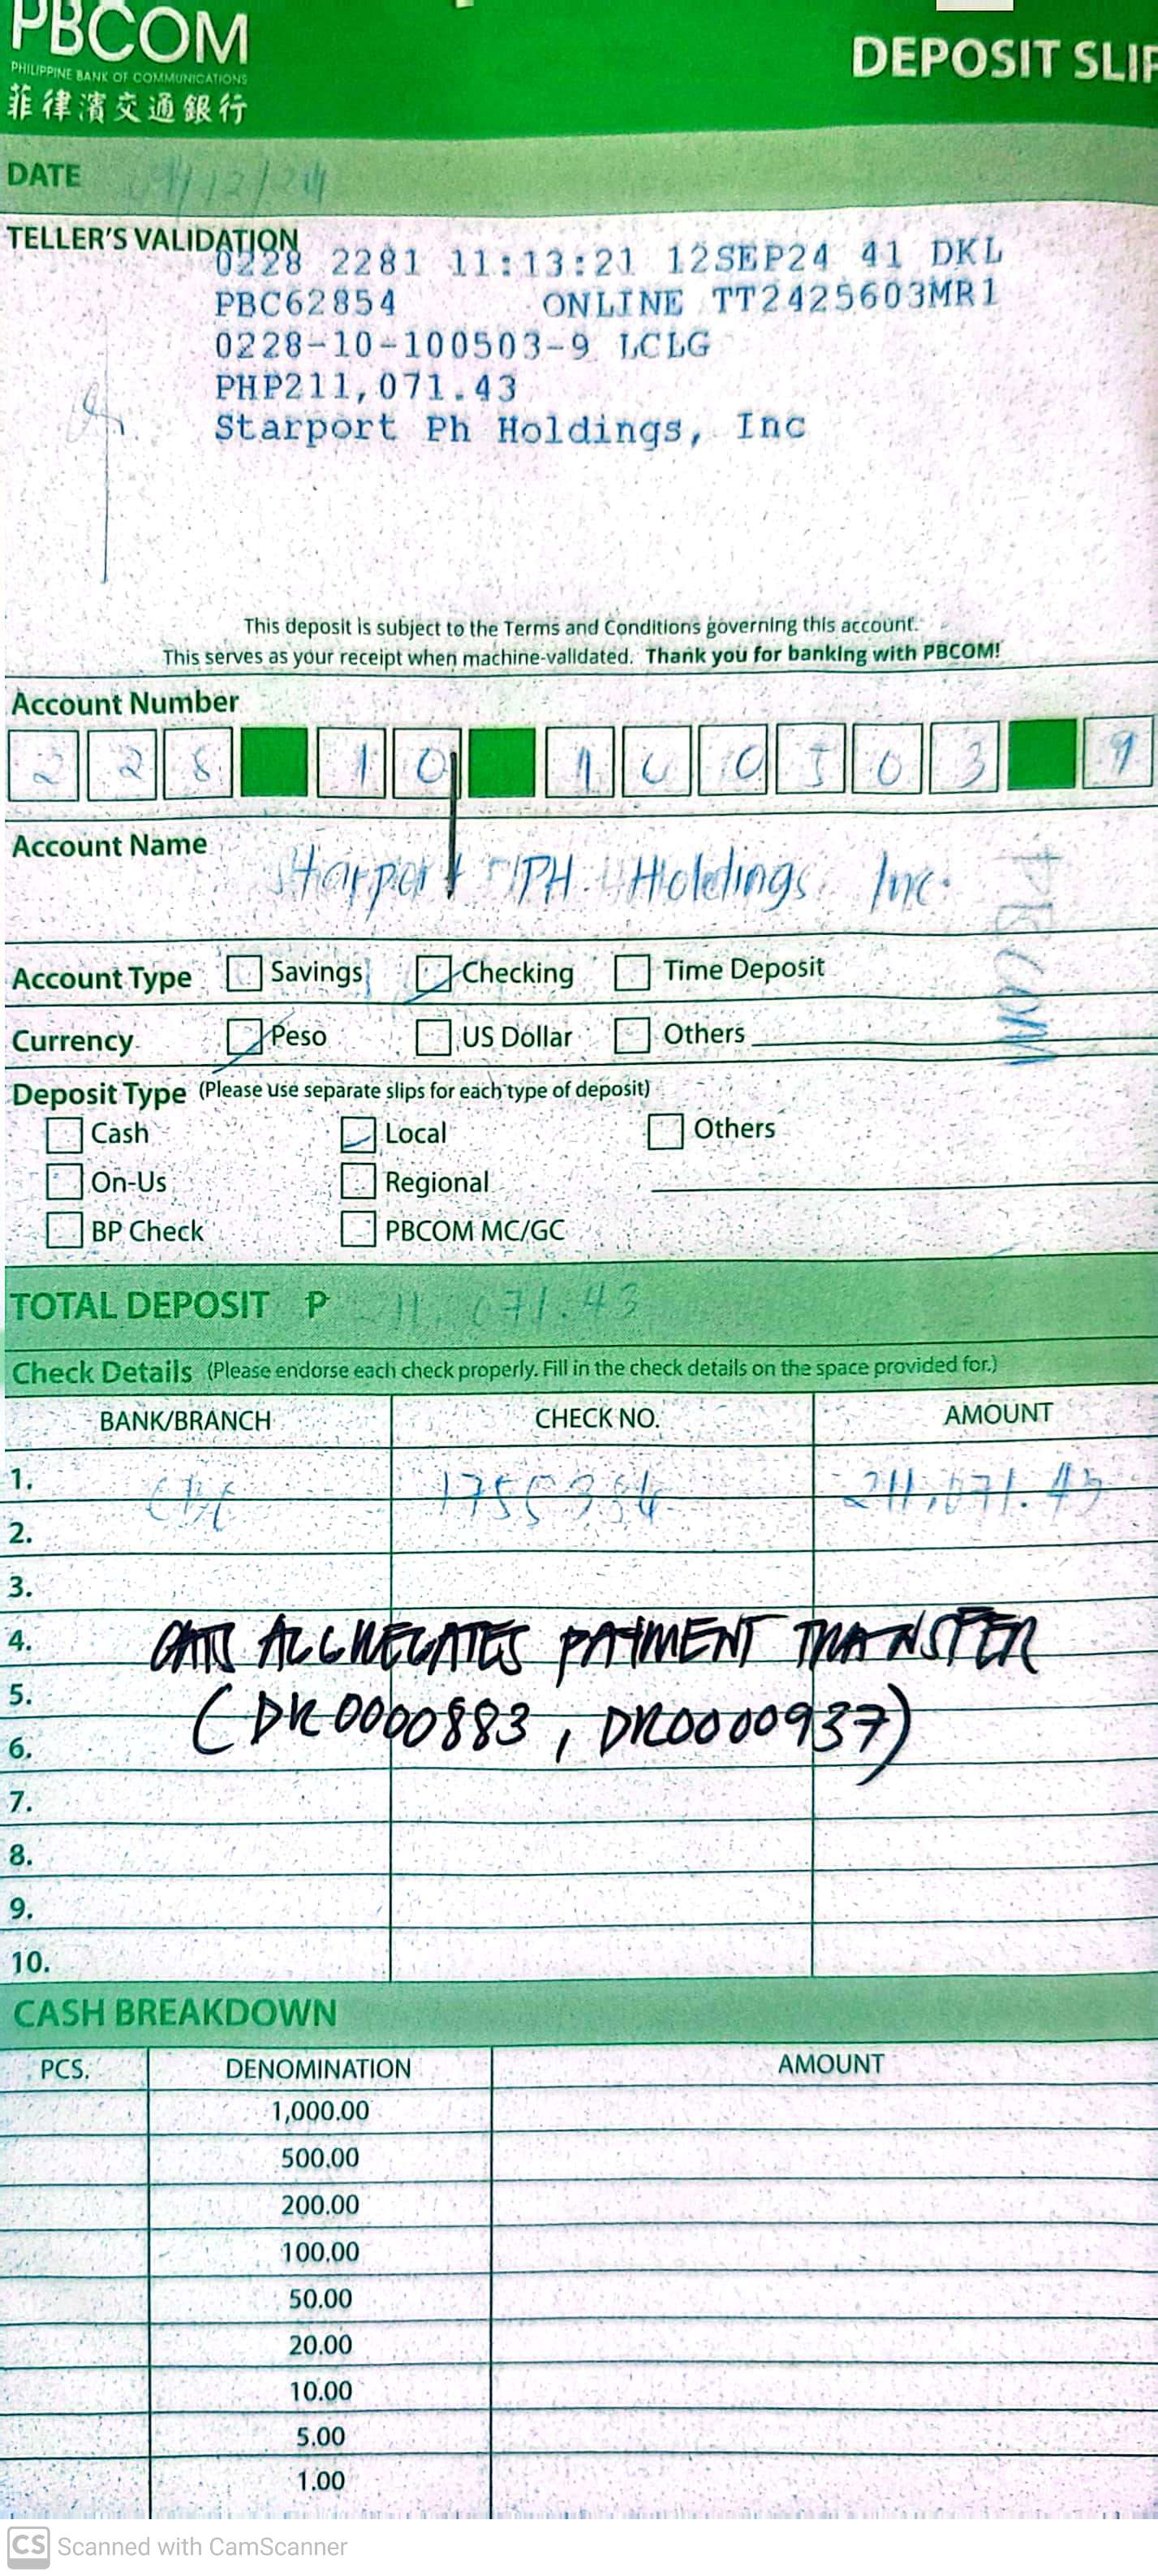 PBCOM
PHILIPPINE BANK OF COMMUNICATIONS
菲律濱交通銀行
DEPOSIT SLIP
DATE 09/12/24
TELLER'S VALIDATION
0228 2281 11:13:21 12SEP24 41 DKL
PBC62854 ONLINE TT2425603MR1
0228-10-100503-9 LCLG
PHP211,071.43
Starport Ph Holdings, Inc
This deposit is subject to the Terms and Conditions governing this account.
This serves as your receipt when machine-validated. Thank you for banking with PBCOM!
Account Number
2 2 8 1 0 1 0 0 5 0 3 9
Account Name Starport PH Holdings Inc.
Account Type Savings Checking Time Deposit
Currency Peso US Dollar Others
Deposit Type (Please use separate slips for each type of deposit)
Cash Local Others
On-Us Regional
BP Check PBCOM MC/GC
TOTAL DEPOSIT P 211,071.43
Check Details (Please endorse each check properly. Fill in the check details on the space provided for.)
BANK/BRANCH CHECK NO. AMOUNT
1. CBC 211,071.43
2.
3.
4. AGGREGATES PAYMENT TRANSFER
5.
(DR0000883, DR0000937)
6.
7.
8.
9.
10.
CASH BREAKDOWN
PCS. DENOMINATION AMOUNT
1,000.00
500.00
200.00
100.00
50.00
20.00
10.00
5.00
1.00
CS Scanned with CamScanner